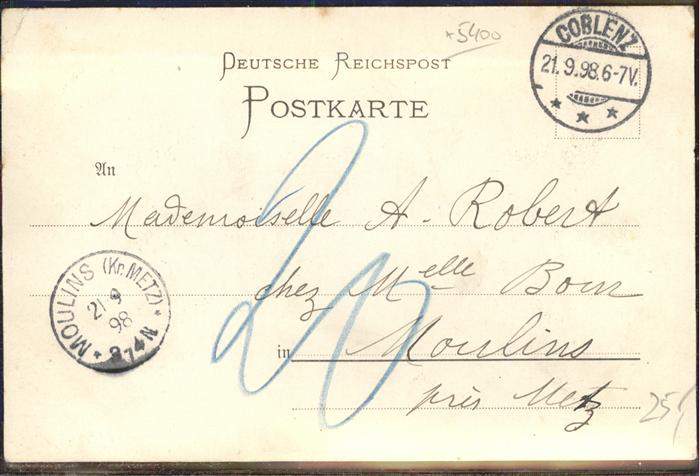 *5400
COBLENZ
21.9.98.6-7V.
DEUTSCHE REICHSPOST
POSTKARTE
An
Mademoiselle A. Robert
chez Melle
in Moulins
près Metz
MOULINS (Kr. METZ)
21 9
98
20
25